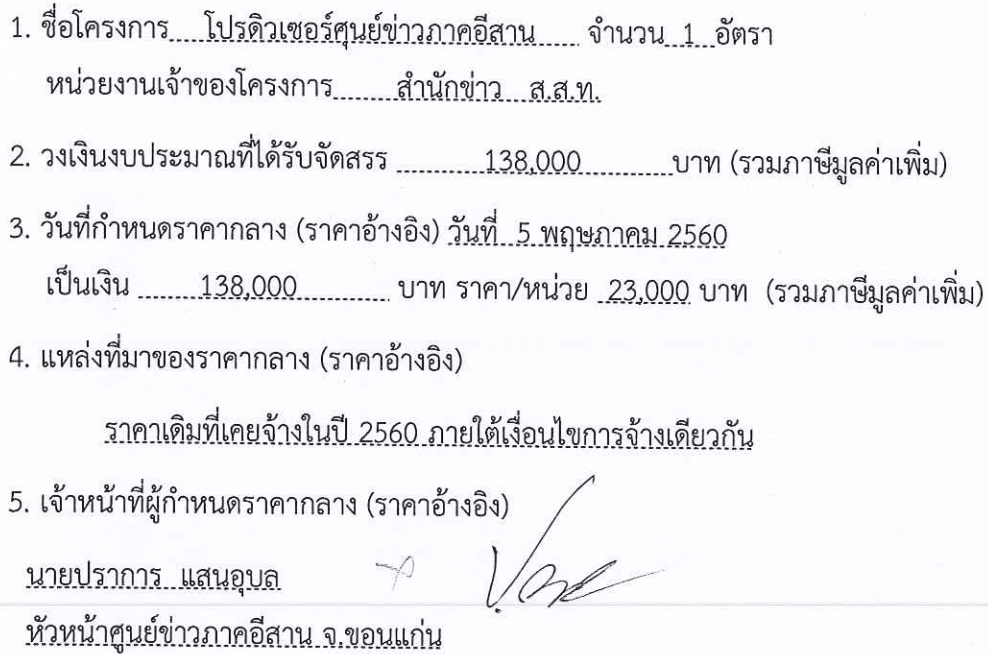 1. ชื่อโครงการ โปรดิวเซอร์ศูนย์ข่าวภาคอีสาน จำนวน 1 อัตรา
หน่วยงานเจ้าของโครงการ สำนักข่าว ส.ส.ท.
2. วงเงินงบประมาณที่ได้รับจัดสรร 138,000 บาท (รวมภาษีมูลค่าเพิ่ม)
3. วันที่กำหนดราคากลาง (ราคาอ้างอิง) วันที่ 5 พฤษภาคม 2560
เป็นเงิน 138,000 บาท ราคา/หน่วย 23,000 บาท (รวมภาษีมูลค่าเพิ่ม)
4. แหล่งที่มาของราคากลาง (ราคาอ้างอิง)
ราคาเดิมที่เคยจ้างในปี 2560 ภายใต้เงื่อนไขการจ้างเดียวกัน
5. เจ้าหน้าที่ผู้กำหนดราคากลาง (ราคาอ้างอิง)
นายปราการ แสนอุบล
หัวหน้าศูนย์ข่าวภาคอีสาน จ.ขอนแก่น